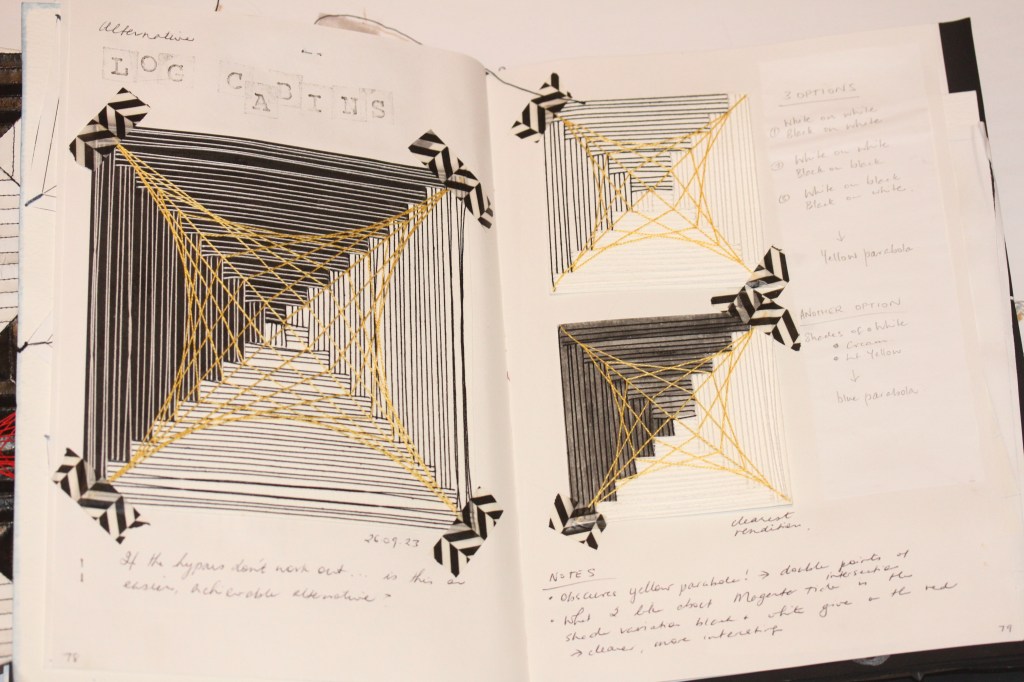 Alternative
LOG CABINS
26.09.23
If the hypars don't work out... is this an
easier, achievable alternative?
78
3 OPTIONS
① White on white
Black on white
② White on white
Black on black
③ White on black
Black on white
↓
Yellow parabola
ANOTHER OPTION
Shades of white
• Cream
• Lt Yellow
↓
blue parabola
clearest
rendition.
NOTES
• Obscures yellow parabola! → double points of
intersection
• What I like about Magenta Tide is the
shade variation black + white give on the red
→ clearer, more interesting
79